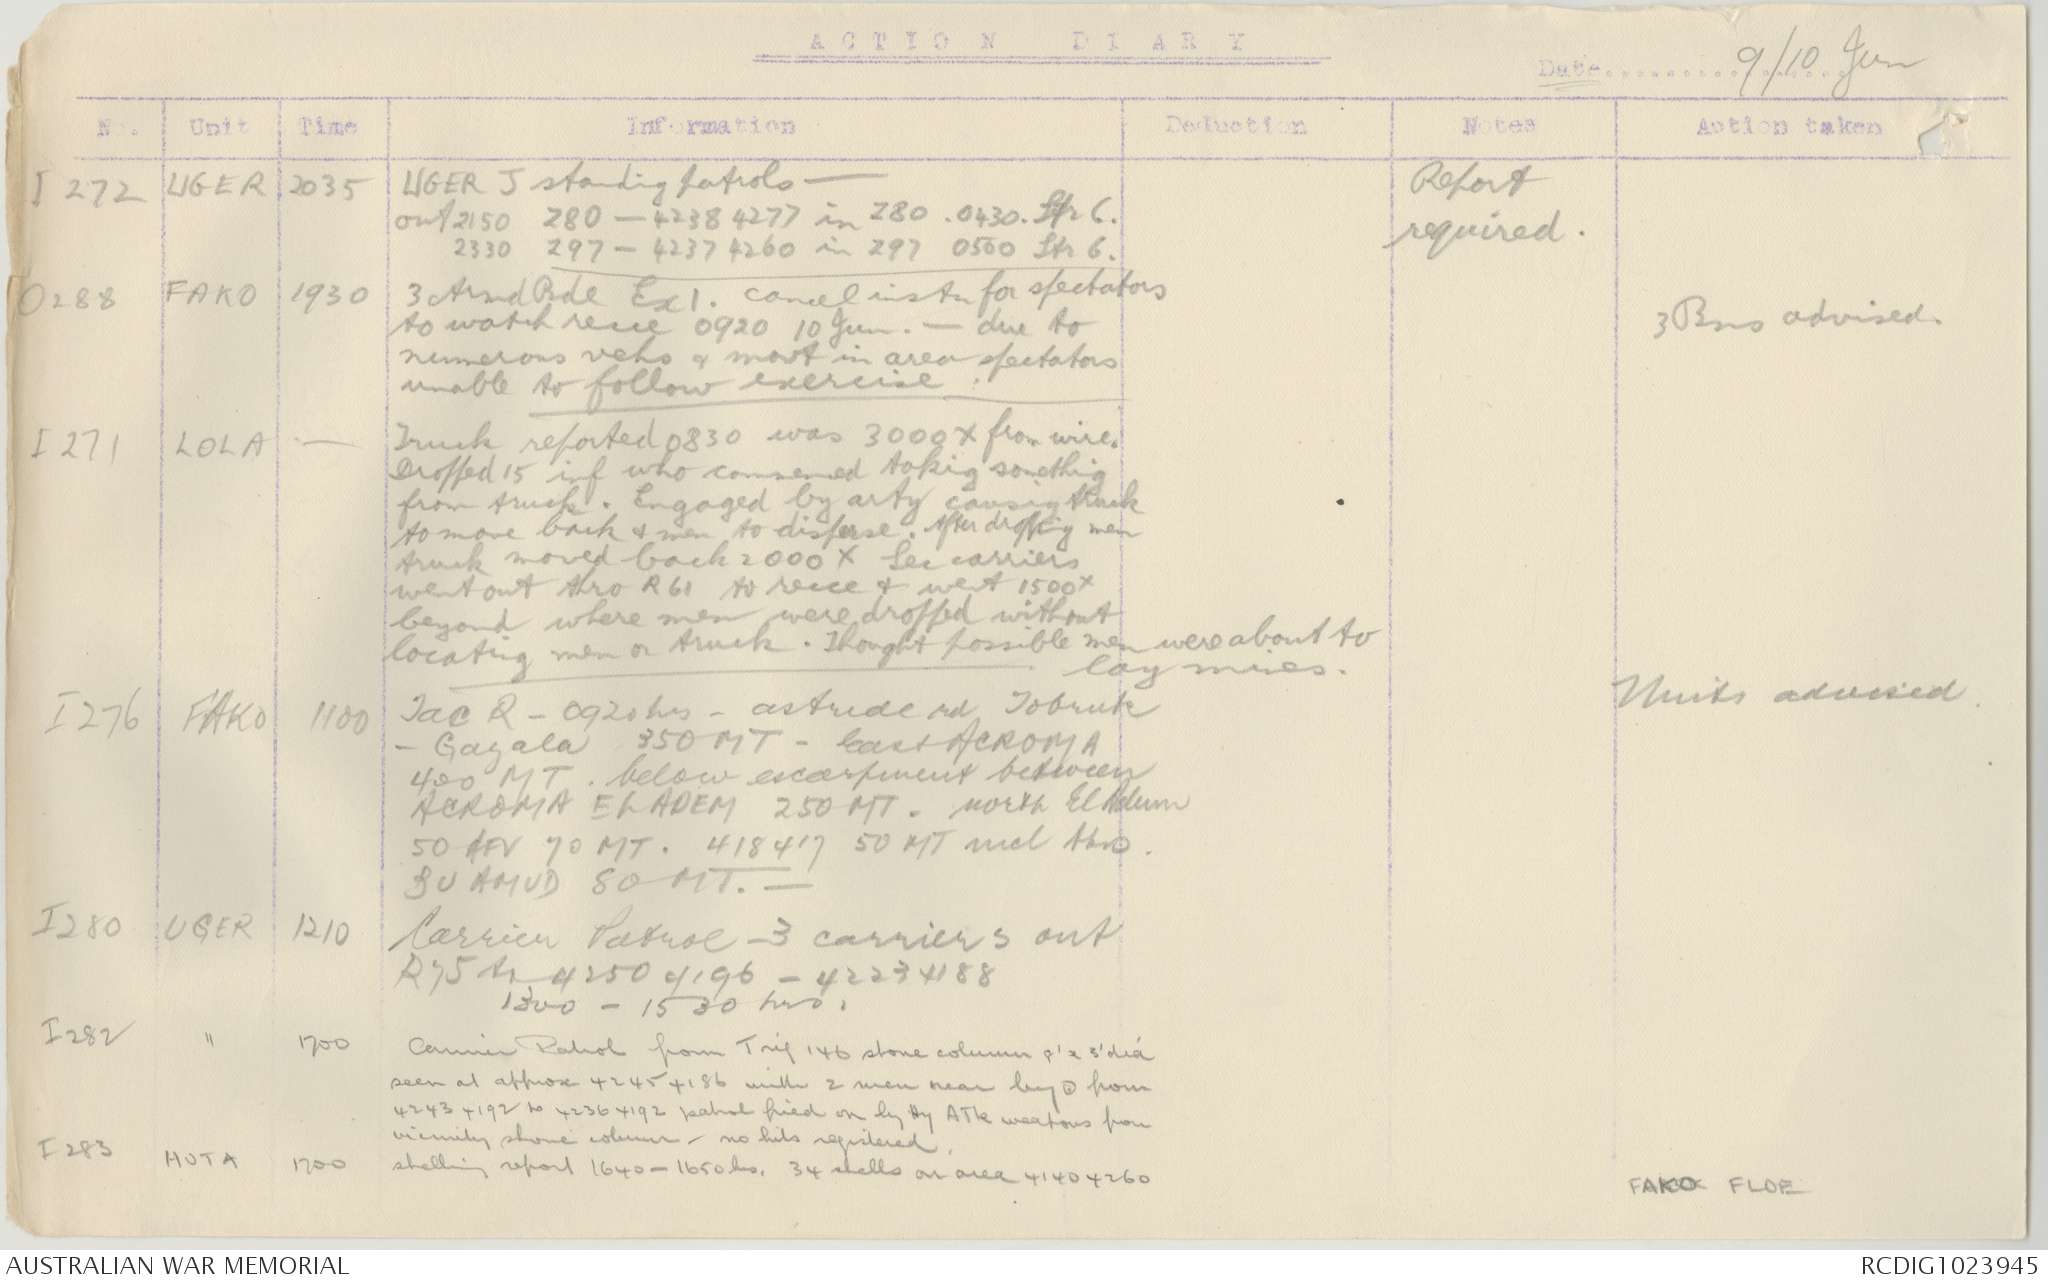 ACTION DIARY
Date 9/10 Jun
No. Unit Time Information Deduction Notes Action taken
I 272 UGER 2035 UGER J standing patrols — Report
out 2150 Z80 — 4238 4277 in Z80 . 0430. Str 6. required.
2330 Z97 — 4237 4260 in Z97 0500 Str 6.
O288 FAKO 1930 3 Armd Bde Ex 1. cancel instn for spectators
to watch recce 0920 10 Jun. — due to 3 Bns advised.
numerous vehs & movt in area spectators
unable to follow exercise.
I 271 LOLA — Truck reported 0830 was 3000x from wire.
Dropped 15 inf who commenced taking something
from truck. Engaged by arty causing truck
to move back & men to disperse. After dropping men
truck moved back 2000x Sec carriers
went out thro R61 to recce & went 1500x
beyond where men were dropped without
locating men or truck. Thought possible men were about to
lay mines.
I 276 FAKO 1100 Tac R — 0920 hrs — astride rd Tobruk Units advised.
— Gazala 350 MT — East ACROMA
400 MT. below escarpment between
ACROMA EL ADEM 250 MT. north El Adem
50 AFV 70 MT. 418417 50 MT incl
BU AMUD 80 MT. —
I 280 UGER 1210 Carrier Patrol — 3 carriers out
R75 to 4250 4196 — 4223 4188
1300 — 1530 hrs.
I 282 " 1700 Carrier Patrol from Trig 146 stone column x 3' dia
seen at approx 4245 4186 with 2 men near by from
4243 4192 to 4236 4192 patrol fired on by Hy ATk weapons from
vicinity stone column — no hits registered.
I 283 HUTA 1700 shelling report 1640 — 1650 hrs. 34 shells on area 4140 4260 FAKO FLOE
AUSTRALIAN WAR MEMORIAL RCDIG1023945